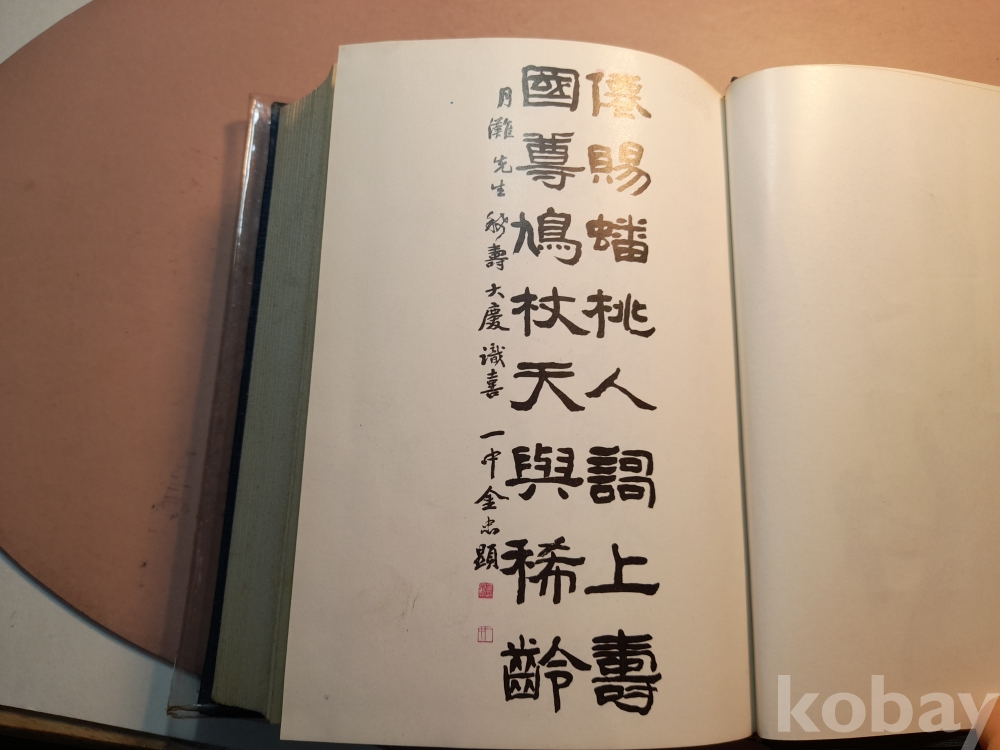 僊賜蟠桃人謌上壽
國尊鳩杖天與稀齡
月灘先生稀壽大慶識喜 一中金忠顯
kobay